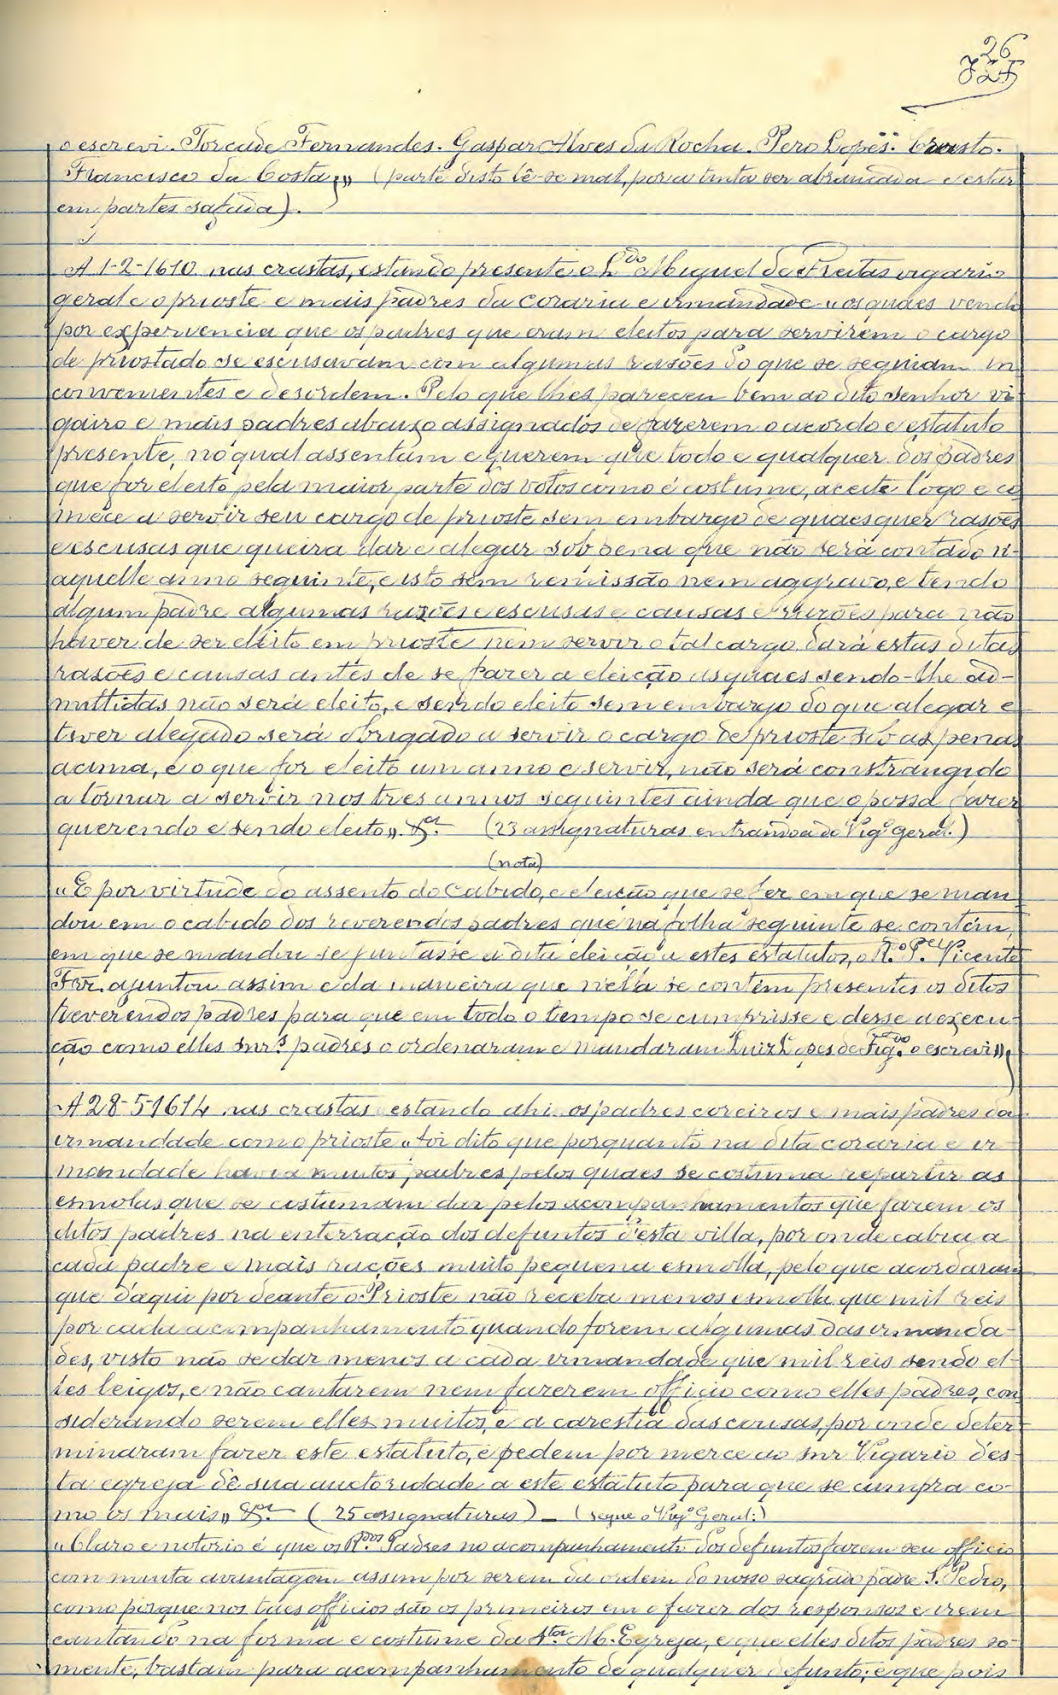 26
325
o escrevi. Torcade Fernandes. Gaspar Alves da Rocha. Pero Lopes. Crasto.
Francisco da Costa,,, (parte disto lê-se mal, por a tinta ser abrancada e estar
em partes safada).
A 1-2-1610 nas crastas, estando presente o L.do Miguel de Freitas vigario
geral e o prioste e mais padres da coraria e irmandade "os quaes vendo
por experiencia que os padres que eram eleitos para servirem o cargo
de priostado se escusavam com algumas rasões do que se seguiam in
convenientes e desordem. Pelo que lhes pareceu bem ao dito senhor vi
gairo e mais padres abaixo assignados de fazerem o acordo e estatuto
presente, no qual assentam e querem que todo e qualquer dos padres
que for eleito pela maior parte dos votos como é costume, aceite logo e co
mece a servir seu cargo de prioste sem embargo de quaesquer rasões
e escusas que queira dar e alegar sob pena que não será contado n'
aquelle anno seguinte, e isto sem remissão nem aggravo, e tendo
algum padre algumas razões e escusas e causas e razões para não
haver de ser eleito em prioste nem servir o tal cargo dará estas ditas
rasões e causas antes de se fazer a eleição as quaes sendo-lhe ad-
mittidas não será eleito, e sendo eleito sem embargo do que alegar e
tiver alegado será obrigado a servir o cargo de prioste sob as penas
acima, e o que for eleito um anno e servir, não será constrangido
a tornar a servir nos tres annos seguintes ainda que o possa fazer
querendo e sendo eleito,, &.ª (23 assignaturas entrando a do Vig.º geral.)
(nota)
"E por virtude do assento do Cabido, e eleição que se fez em que se man
dou em o cabido dos reverendos padres que na folha seguinte se contém,
em que se mandou se juntasse a dita eleição a estes estatutos, o R.do P.e Vicente
ajuntou assim e da maneira que nella se contém presentes os ditos
reverendos padres para que em todo o tempo se cumprisse e desse a execu-
ção como elles snr.s padres o ordenaram e mandaram Luiz Lopes de Fig.do o escrevi,,
A 28-5-1614 nas crastas estando ahi os padres coreiros e mais padres da
irmandade com o prioste "foi dito que porquanto na dita coraria e ir
mandade havia muitos padres pelos quaes se costuma repartir as
esmolas que se costumam dar pelos acompanhamentos que fazem os
ditos padres na enterração dos defuntos d'esta villa, por onde cabia a
cada padre e mais rações muito pequena esmolla, pelo que acordaram
que d'aqui por deante o Prioste não receba menos esmolla que mil reis
por cada acompanhamento quando forem algumas das irmanda-
des, visto não se dar menos a cada irmandade que mil reis sendo el-
les leigos, e não cantarem nem fazerem officio como elles padres, con
siderando serem elles muitos, e a carestia das cousas, por onde deter
minaram fazer este estatuto, e pedem por merce ao snr Vigario des-
ta egreja dê sua auctoridade a este estatuto para que se cumpra co-
mo os mais,, &.ª (25 assignaturas) — (segue o Vig.º Geral:)
"Claro e notorio é que os R.dos Padres no acompanhamento dos defuntos fazem seu officio
com muita avantagem assim por serem da ordem do nosso sagrado padre S. Pedro,
como porque nos taes officios são os primeiros em o fazer dos responsos e irem
cantando na forma e costume da S.ta M. Egreja, e que elles ditos padres so-
mente, bastam para acompanhamento de qualquer defunto; e que pois